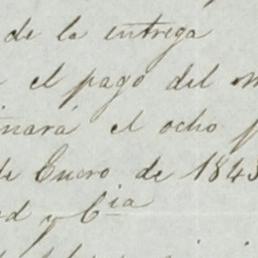 de la entrega
el pago del
inará el ocho p
de Enero de 1843
d y Cia